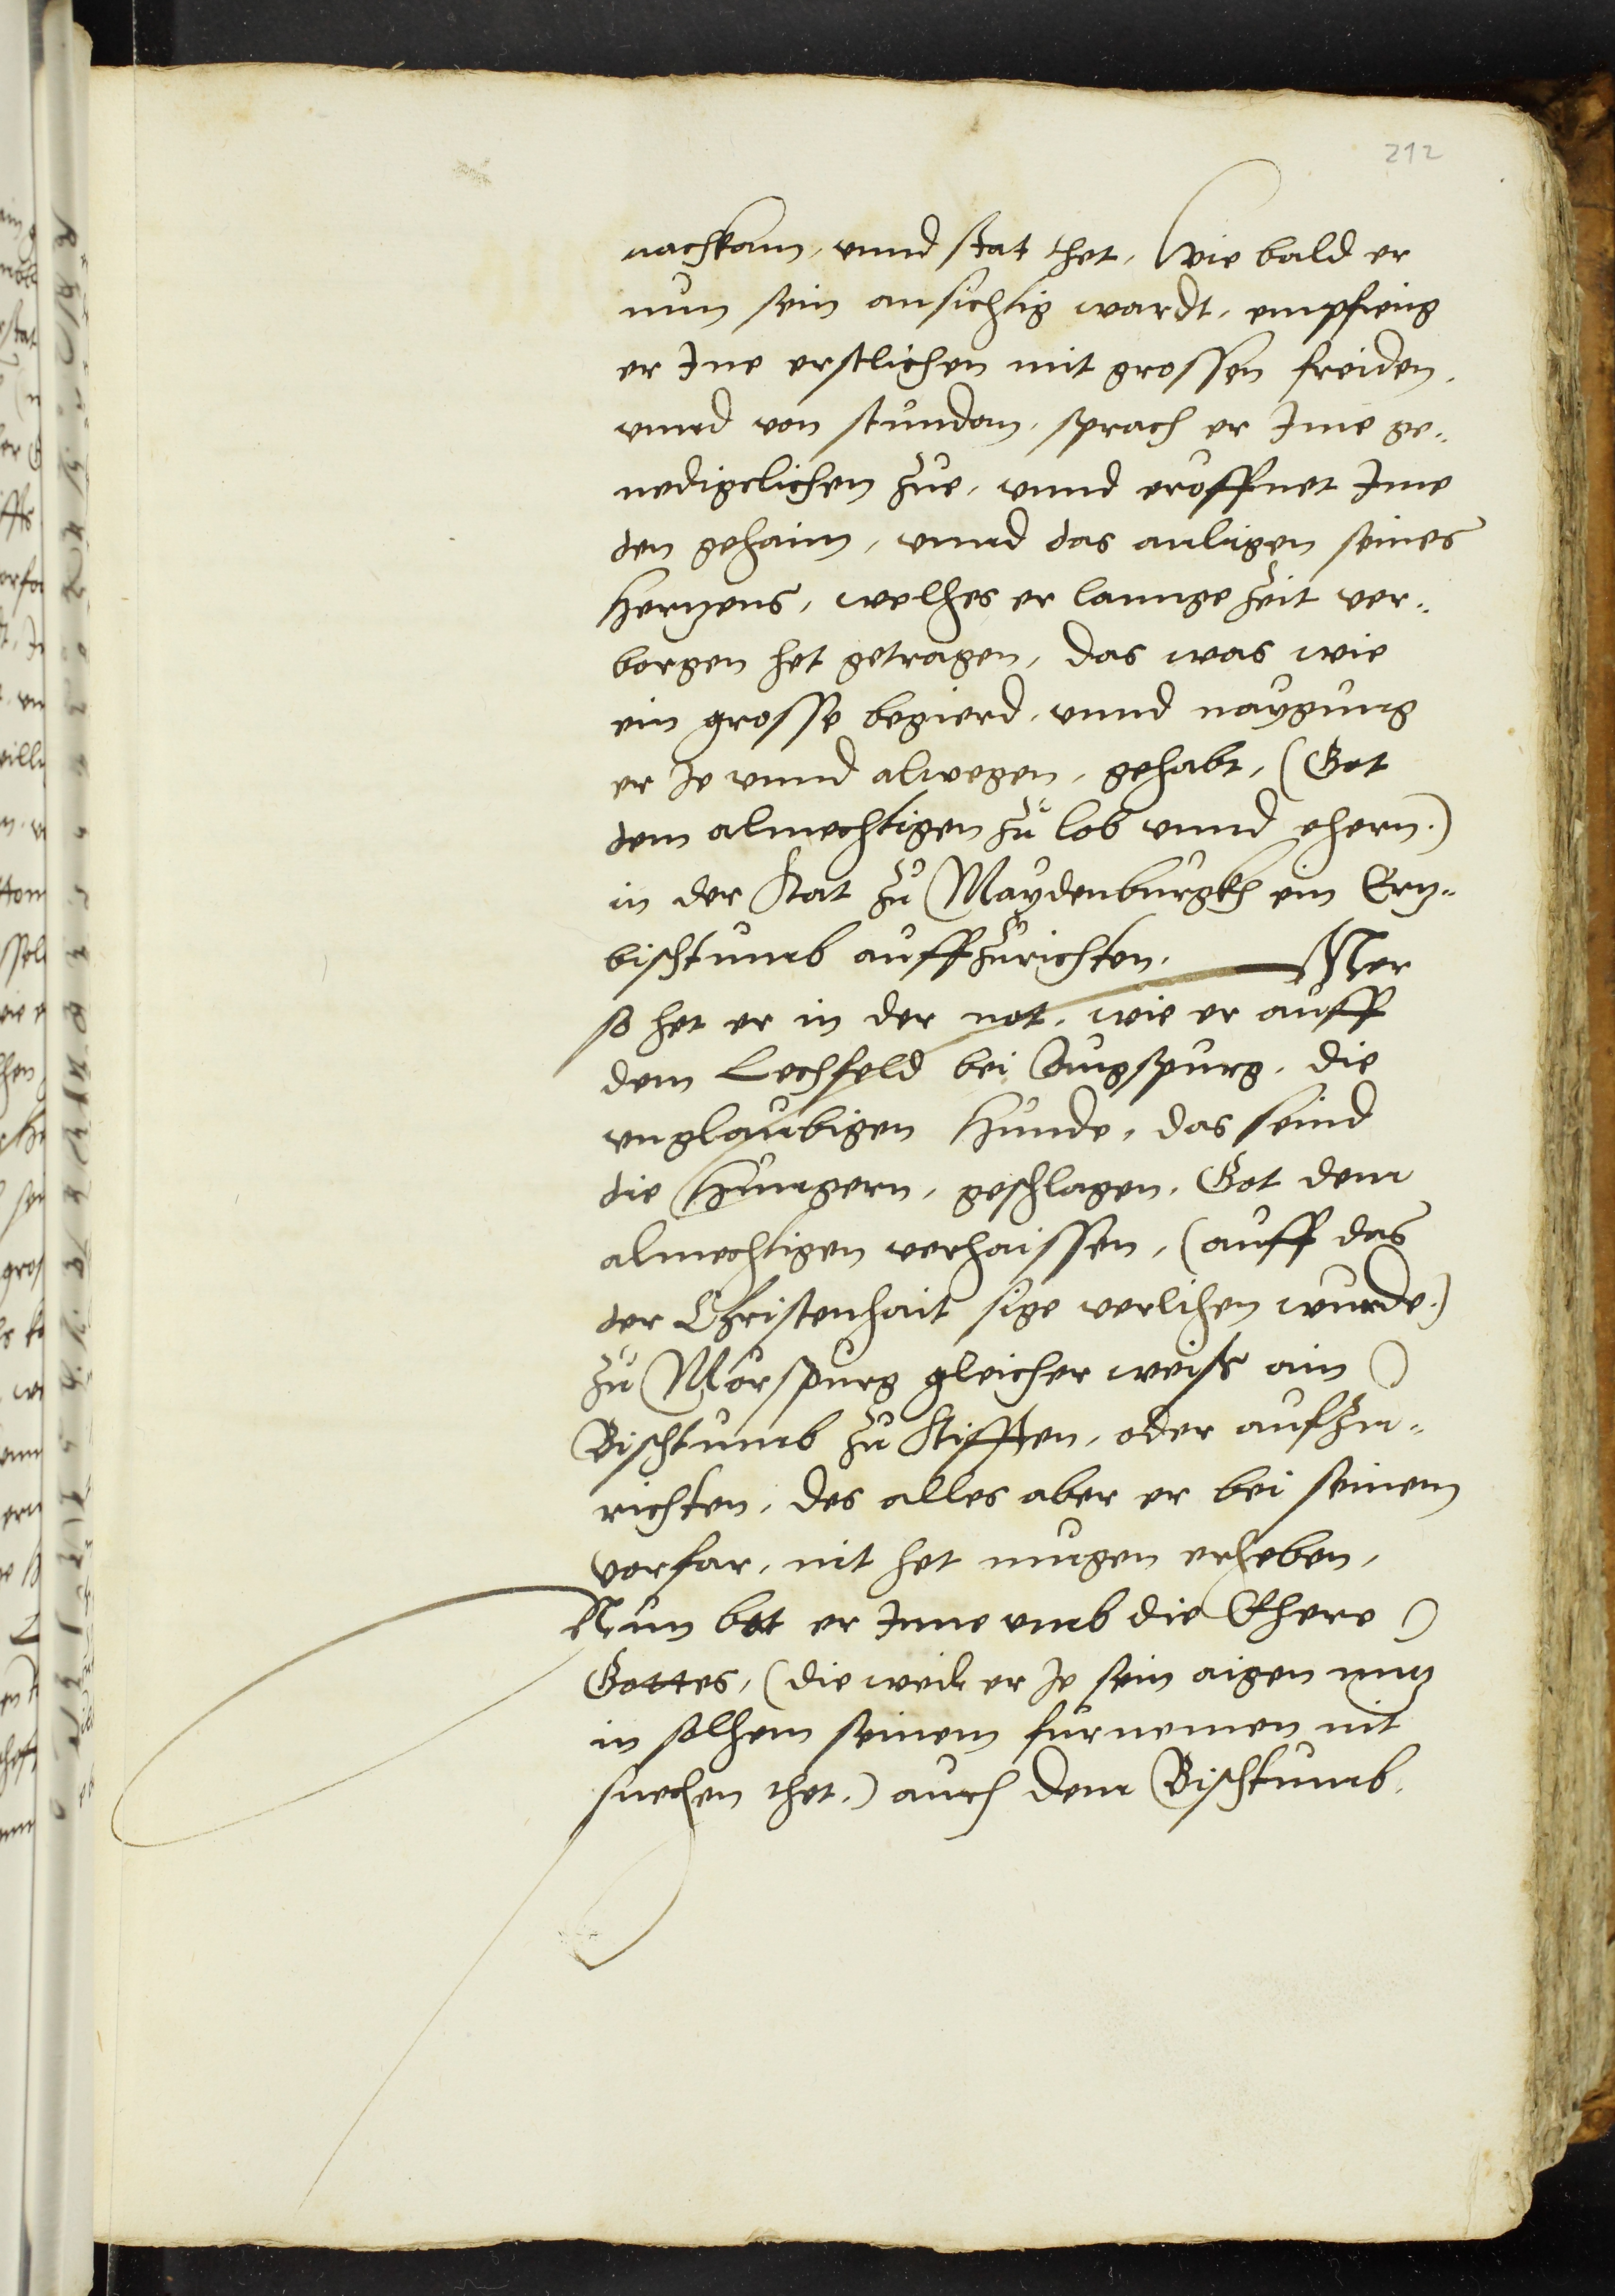 212
nachkam, vnnd stat thet, Wie bald er
nun sein ansichtig wardt, empfieng
er Ine erstlichen mit grossen freiden,
vnnd von stundan, sprach er Ime ge-
nedigelichen zue, vnnd eroffnet Ime
den gehaim, vnnd das anligen seines
Hertzens, welhes er lannge zeit ver-
borgen het getragen, das was wie
ein grosse begierd, vnnd naygung
er Je vnnd alwegen, gehabt, (Got
dem almechtigen zu lob vnnd ehern.)
in der Stat zu Maydenburgkh ein Ertz-
bischtumb auffzurichten. Mer
so het er in der not, wie er auff
dem Lechfeld bei Augspurg, die
vnglaubigen Hunde, das seind
die Hungern, geschlagen, Got dem
almechtigen verhaissen, (auff das
der Christenhait sige verlihen wurde.)
zu Mörspurg gleicher weiss ain
Bischtumb zu Stifften, oder aufzu-
richten, des alles aber er bei seinem
vorfar, nit het mugen erheben,
Nun bot er Inne vmb die Ehere
Gottes, (die weil er Je sein aigen nutz
in solhem seinem furnemen nit
suechen thet,) auch dem Bischtumb,